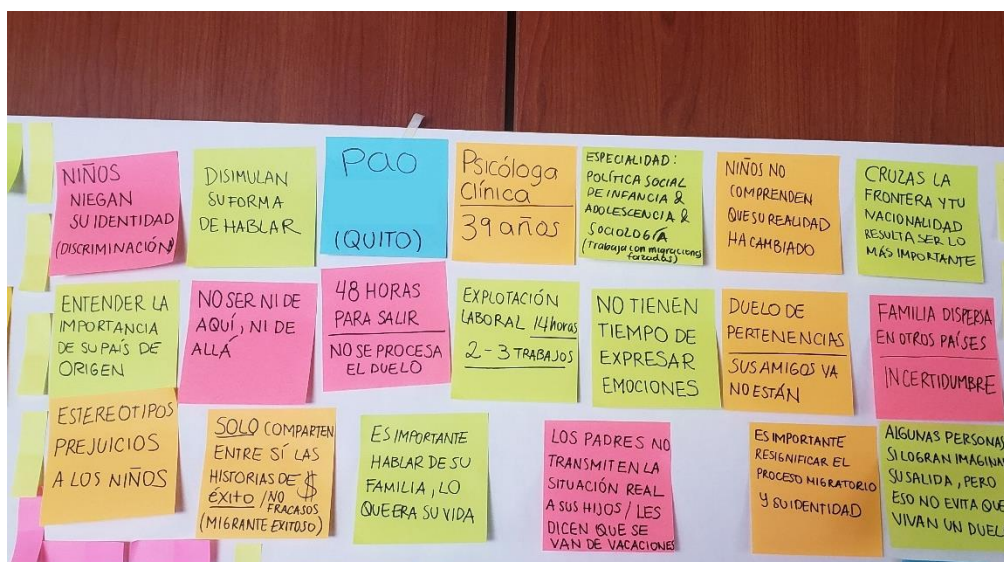 NIÑOS
NIEGAN
SU IDENTIDAD
(DISCRIMINACIÓN)
DISIMULAN
SU FORMA
DE HABLAR
Pao
(QUITO)
Psicóloga
Clínica
39 años
ESPECIALIDAD:
POLÍTICA SOCIAL
DE INFANCIA &
ADOLESCENCIA &
SOCIOLOGÍA
(Trabaja con migraciones
forzadas)
NIÑOS NO
COMPRENDEN
QUE SU REALIDAD
HA CAMBIADO
CRUZAS LA
FRONTERA Y TU
NACIONALIDAD
RESULTA SER LO
MÁS IMPORTANTE
ENTENDER LA
IMPORTANCIA
DE SU PAÍS DE
ORIGEN
NO SER NI DE
AQUÍ, NI DE
ALLÁ
48 HORAS
PARA SALIR
NO SE PROCESA
EL DUELO
EXPLOTACIÓN
LABORAL 14 horas
2-3 TRABAJOS
NO TIENEN
TIEMPO DE
EXPRESAR
EMOCIONES
DUELO DE
PERTENENCIAS
SUS AMIGOS YA
NO ESTÁN
FAMILIA DISPERSA
EN OTROS PAÍSES
INCERTIDUMBRE
ESTEREOTIPOS
PREJUICIOS
A LOS NIÑOS
SOLO COMPARTEN
ENTRE SÍ LAS
HISTORIAS DE $
ÉXITO / NO FRACASOS
(MIGRANTE EXITOSO)
ES IMPORTANTE
HABLAR DE SU
FAMILIA, LO
QUE ERA SU VIDA
LOS PADRES NO
TRANSMITEN LA
SITUACIÓN REAL
A SUS HIJOS / LES
DICEN QUE SE
VAN DE VACACIONES
ES IMPORTANTE
RESIGNIFICAR EL
PROCESO MIGRATORIO
Y SU IDENTIDAD
ALGUNAS PERSONAS
SI LOGRAN IMAGINA
SU SALIDA, PERO
ESO NO EVITA QUE
VIVAN UN DUEL